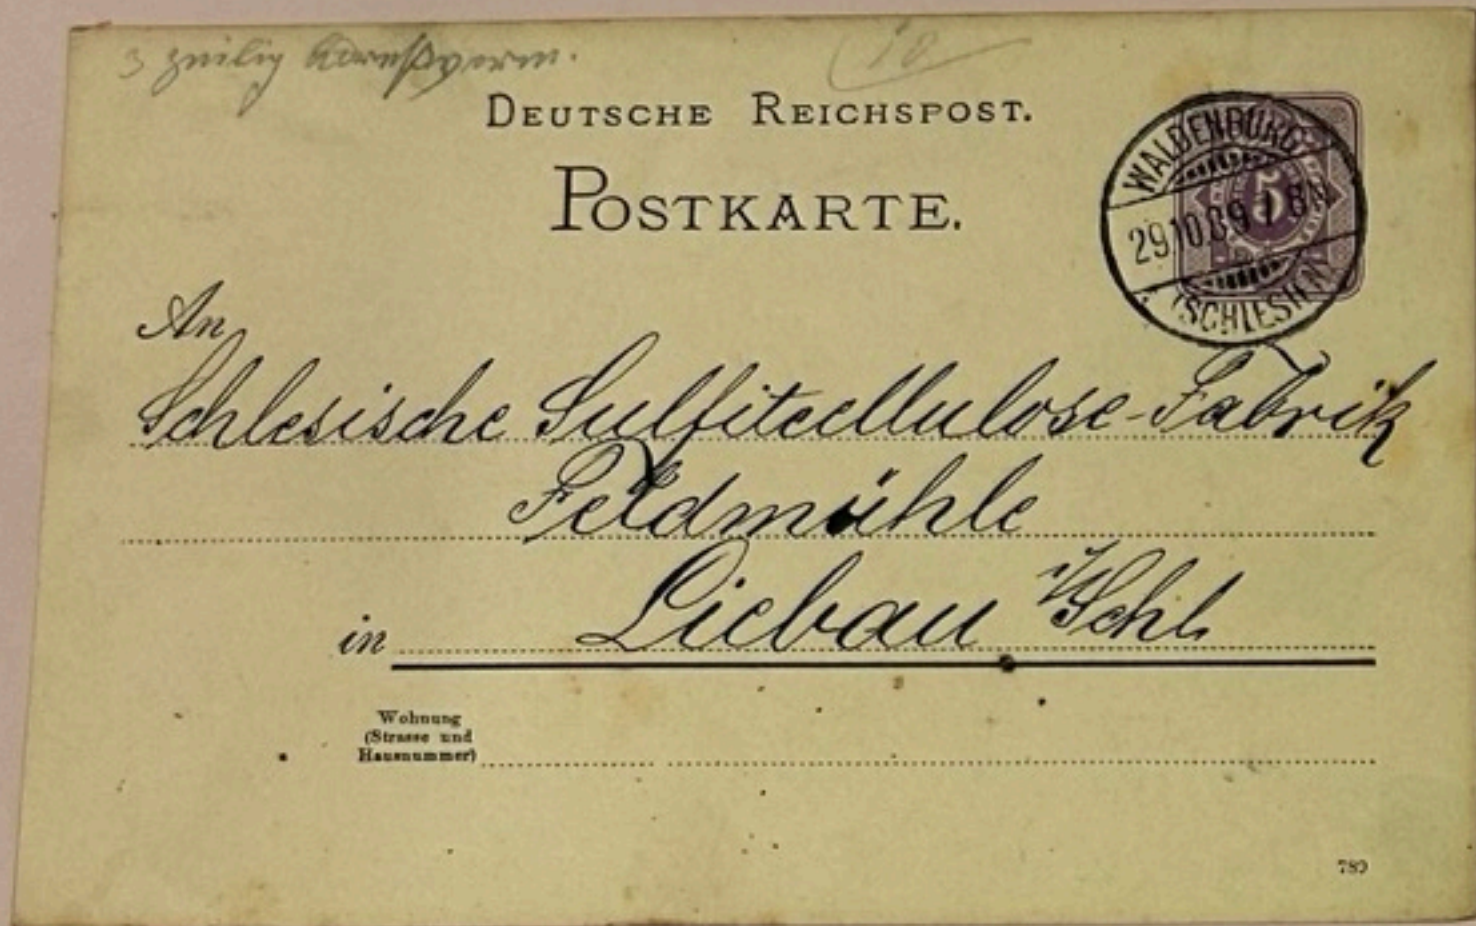 3 zeilig Adreßvorm.
10
DEUTSCHE REICHSPOST.
POSTKARTE.
WALDENBURG
5
29.10.89 7 8 N
(SCHLESIEN)
An
Schlesische Sulfitcellulose-Fabrik
Feldmühle
in Liebau i/Schl.
Wohnung
(Strasse und
Hausnummer)
789